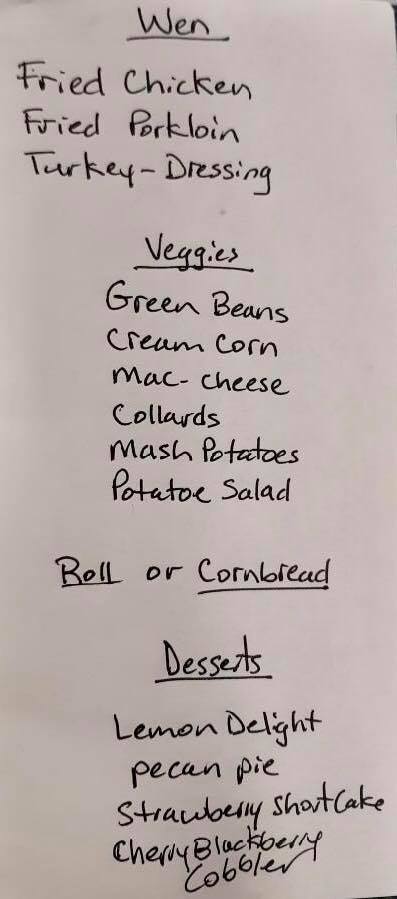 Wen
Fried Chicken
Fried Porkloin
Turkey-Dressing
Veggies
Green Beans
Cream Corn
Mac-cheese
Collards
Mash Potatoes
Potatoe Salad
Roll or Cornbread
Desserts
Lemon Delight
pecan pie
Strawberry ShortCake
Cherry Blackberry
Cobbler